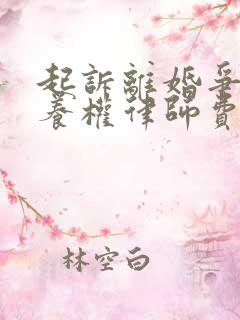 起訴離婚爭
養權律師費
林空白